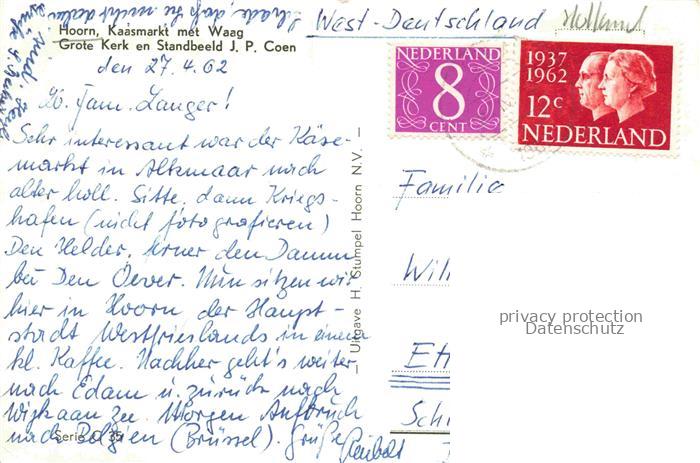 West-Deutschland Holland
Schade, daß Sie nicht
Hoorn, Kaasmarkt met Waag
Grote Kerk en Standbeeld J. P. Coen
den 27.4.62
NEDERLAND
8
CENT
1937
1962
12c
NEDERLAND
Fam. Langer!
Sehr interessant war der Käse-
markt in Alkmaar nach
alter holl. Sitte, dann Kriegs-
hafen (nicht fotografieren)
Den Helder, ferner den Damm
bei Den Oever. Nun sitzen wir
hier in Hoorn der Haupt-
stadt Westfrieslands in einem
kl. Kaffee. Nachher geht's weiter
nach Edam u. zurück nach
Wijkaan Zee. Morgen Aufbruch
nach Belgien (Brüssel). Grüße
Serie C 35
Uitgave H. Stumpel Hoorn N.V.
Familie
Will
privacy protection
Datenschutz
Ett
Sch